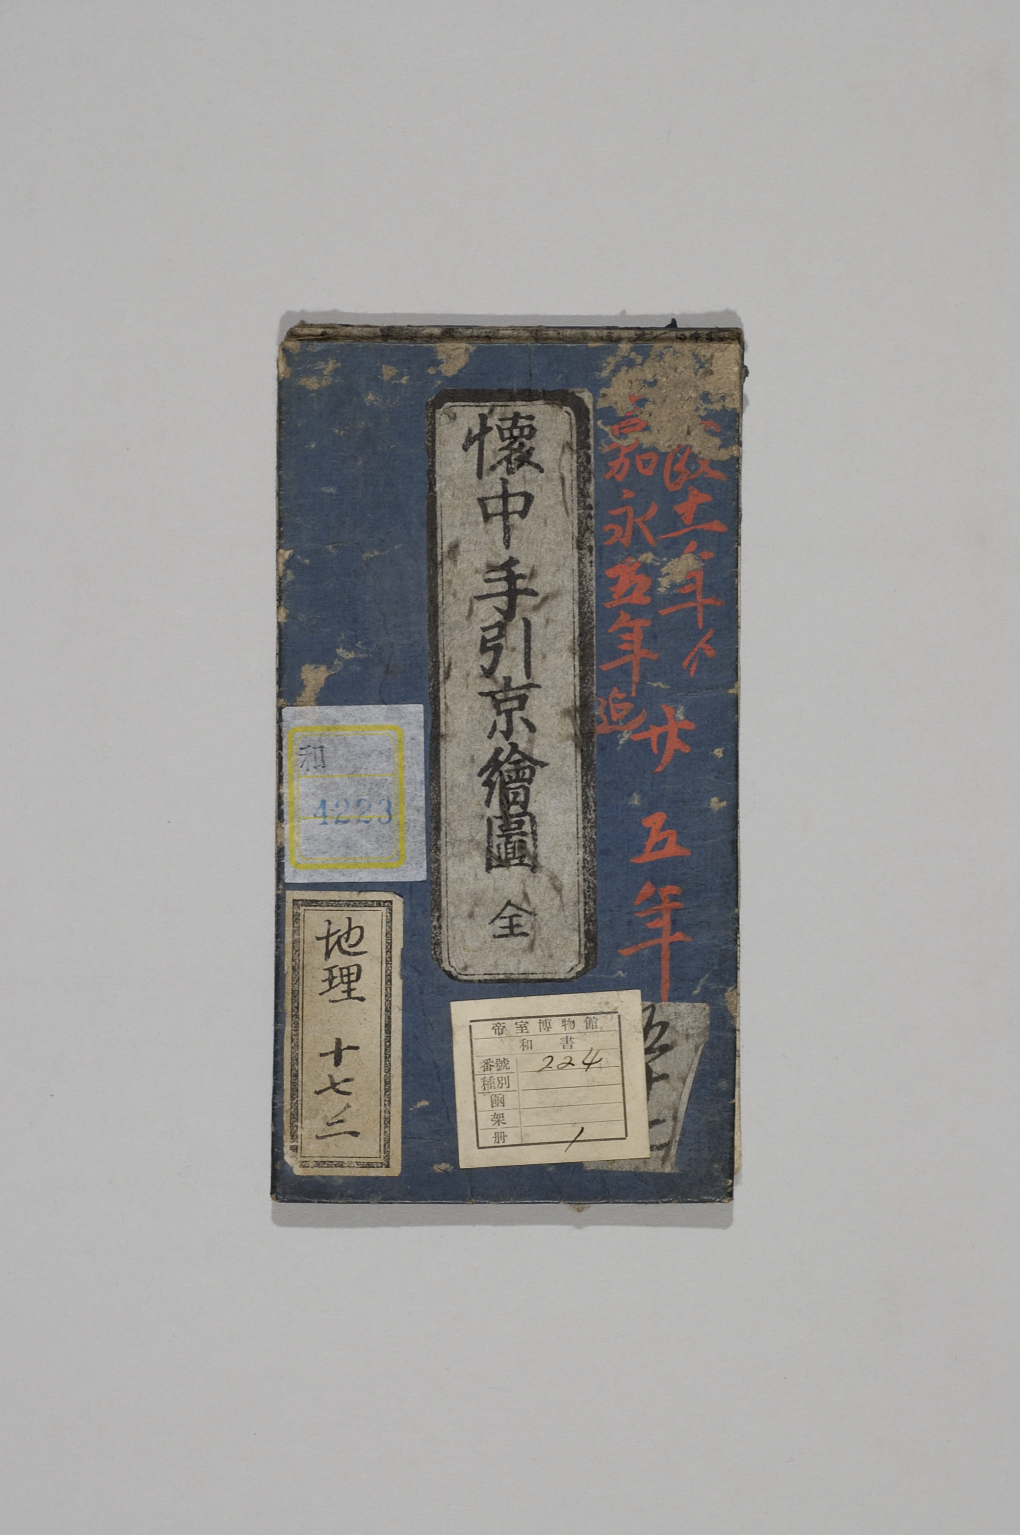 政十一年ヨリ
嘉永五年迠
廿五年
懐中手引京繪圖 全
和
4223
地理 十七 三
帝室博物館
和書
番號 224
種別
凾
架
册 1